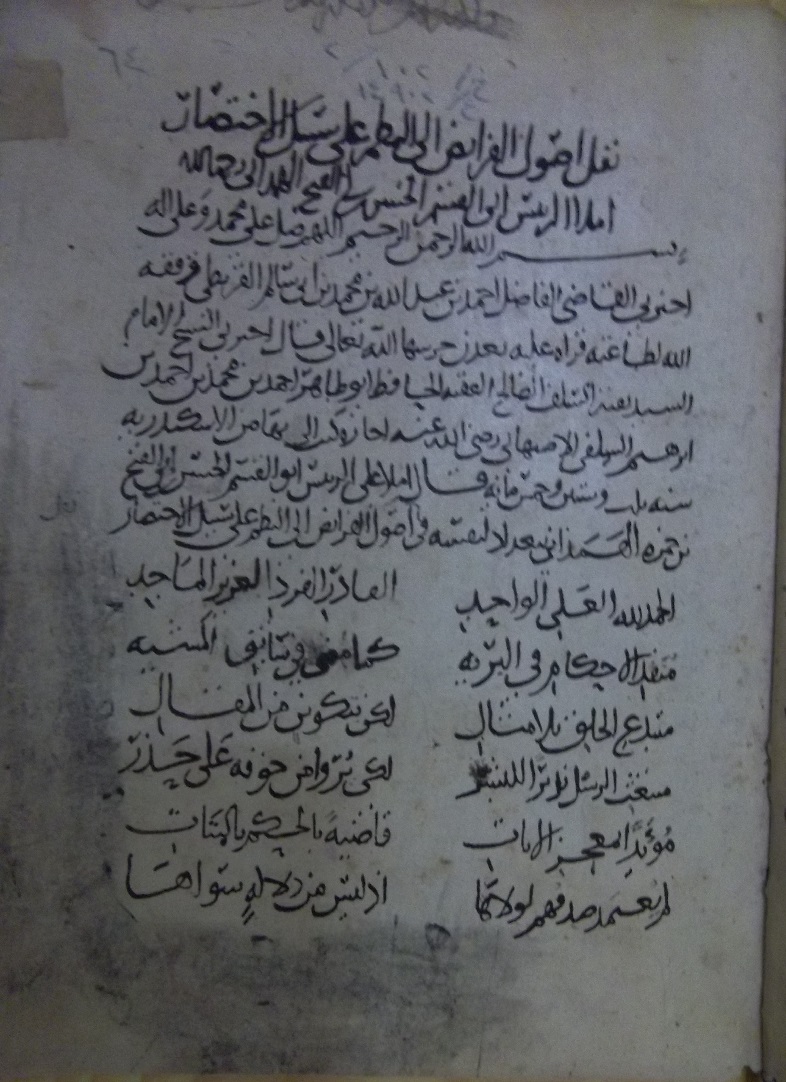 ٦٤
نقل اصول الفرايض الى النظم على سبيل الاختصار
املا الريس ابى القسم الحسن بن ابى الفتح الهمدانى رحمه الله
بسم الله الرحمن الرحيم اللهم صل على محمد وعلى اله
اخبرنى القاضى الفاضل احمد بن عبد الله بن محمد بن ابى سالم القريظى وفقه
الله لطفا عنه قراه عليه بعدن حرسها الله تعالى قال اخبرنى الشيخ الامام
السيد بقية السلف الصالح الفقيه الحافظ ابو طاهر احمد بن محمد بن احمد بن
ابرهيم السلفى الاصبهانى رضى الله عنه اجازه كتب الى بها من الاسكندريه
سنه ثلث وستين وخمس مايه قال املا على الريس ابو القسم الحسن بن ابى الفتح
بن حمزه الهمدانى ببغداد لنفسه فى اصول الفرايض الى النظم على سبيل الاختصار
الحمد لله العلى الواحد القادر الفرد العزيز الماجد
منفذ الاحكام فى البريه كما مضى فى سابق المشيه
مبتدع الخلق بلا مثال لكن بتكوين من المقال
مبتعث الرسل نذيرا للبشر لكى يروا من خوفه على حذر
مؤيدا بمعجز الايات قاضية بالحكم بالبتات
لم يعتمد صدقهم لولاها اذ ليس من دلالة سواها